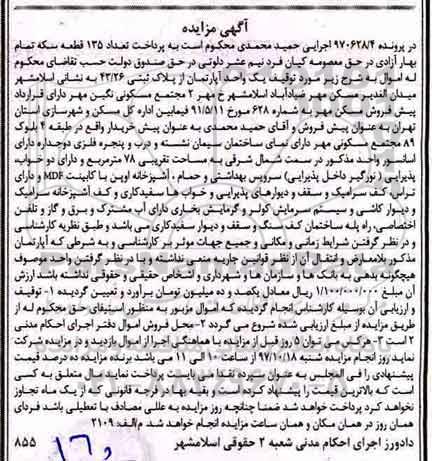 آگهی مزایده
در پرونده ۹۷۰۶۲۸/۴ اجرایی حمید محمدی محکوم است به پرداخت تعداد ۱۳۵ قطعه سکه تمام
بهار آزادی در حق معصومه کیان فرد نیم عشر دولتی در حق صندوق دولت حسب تقاضای محکوم
له اموال به شرح زیر در مورد توقیف یک واحد آپارتمان از پلاک ثبتی ۴۳/۲۶ به نشانی اسلامشهر
میدان الغدیر مسکن مهر ضیاآباد اسلامشهر خ مهر ۲ مجتمع مسکونی نگین مهر دارای قرارداد
پیش فروش مسکن مهر با شماره ۶۲۸ مورخ ۹۱/۵/۱۱ فیمابین اداره کل مسکن و شهرسازی استان
تهران به عنوان پیش فروش و آقای حمید محمدی به عنوان پیش خریدار واقع در طبقه ۴ بلوک
۸۹ مجتمع مسکونی مهر دارای نمای ساختمان سیمان نشسته و درب و پنجره فلزی دوجداره دارای
آسانسور واحد مذکور در سمت شمال شرقی به مساحت تقریبی ۷۸ مترمربع و دارای دو خواب،
پذیرایی (نورگیر داخل پذیرایی) سرویس بهداشتی و حمام ، آشپزخانه اوپن با کابینت MDF و دارای
تراس، کف سرامیک و سقف و دیوارهای پذیرایی و خواب ها سفیدکاری و کف آشپزخانه سرامیک
و دیوار کاشی و سیستم سرمایش کولر و گرمایش بخاری دارای آب مشترک و برق و گاز و تلفن
اختصاصی، راه پله ساختمان کف سنگ و سقف و دیوار سفیدکاری می باشد و طبق نظریه کارشناسی
و در نظر گرفتن شرایط زمانی و مکانی و جمیع جهات موثر بر کارشناسی و به شرطی که آپارتمان
مذکور بلامعارض و انتقال آن از نظر قوانین جاریه منعی نداشته و با در نظر گرفتن واحد موصوف
هیچگونه بدهی به بانک ها و سازمان ها و شهرداری و اشخاص حقیقی و حقوقی نداشته باشد ارزش
آن مبلغ ۱/۱۰۰/۰۰۰/۰۰۰ ریال معادل یکصد و ده میلیون تومان برآورد و تعیین گردیده ۱- توقیف
و ارزیابی آن بوسیله کارشناس انجام گردیده که اموال مزبور به منظور استیفای حق محکوم له از
طریق مزایده از مبلغ ارزیابی شده شروع می گردد ۲- محل فروش اموال دفتر اجرای احکام مدنی
۲ است ۳- هرکس می توان ۵ روز قبل از مزایده با هماهنگی اجرا از اموال بازدید و در مزایده شرکت
نماید روز انجام مزایده شنبه ۹۷/۱۰/۱۸ از ساعت ۱۰ الی ۱۱ می باشد برنده مزایده ده درصد قیمت
پیشنهادی را فی المجلس به عنوان سپرده نقدا می بایست پرداخت نماید مال متعلق به کسی
است که بالاترین قیمت را پیشنهاد کرده است و بقیه بها در فرجه قانونی که از یک ماه تجاوز
نخواهد کرد پرداخت خواهد شد ضمنا چنانچه روز مزایده به عللی مصادف با تعطیلی باشد فردای
همان روز در همان مکان و همان ساعت مزایده انجام خواهد شد. م/الف: ۲۱۰۹
دادورز اجرای احکام مدنی شعبه ۲ حقوقی اسلامشهر ۸۵۵